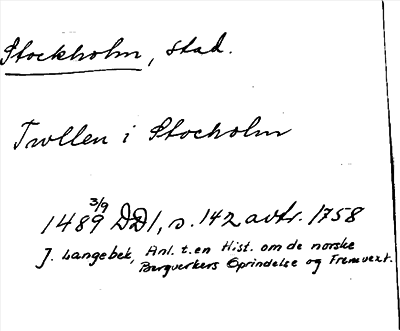 Stockholm, stad.
Twllen i Stocholm
3/9
1489 DD1, s. 142 avtr. 1758
J. Langebek, Anl. t. en Hist. om de norske
Bergverkers Oprindelse og Fremvext.